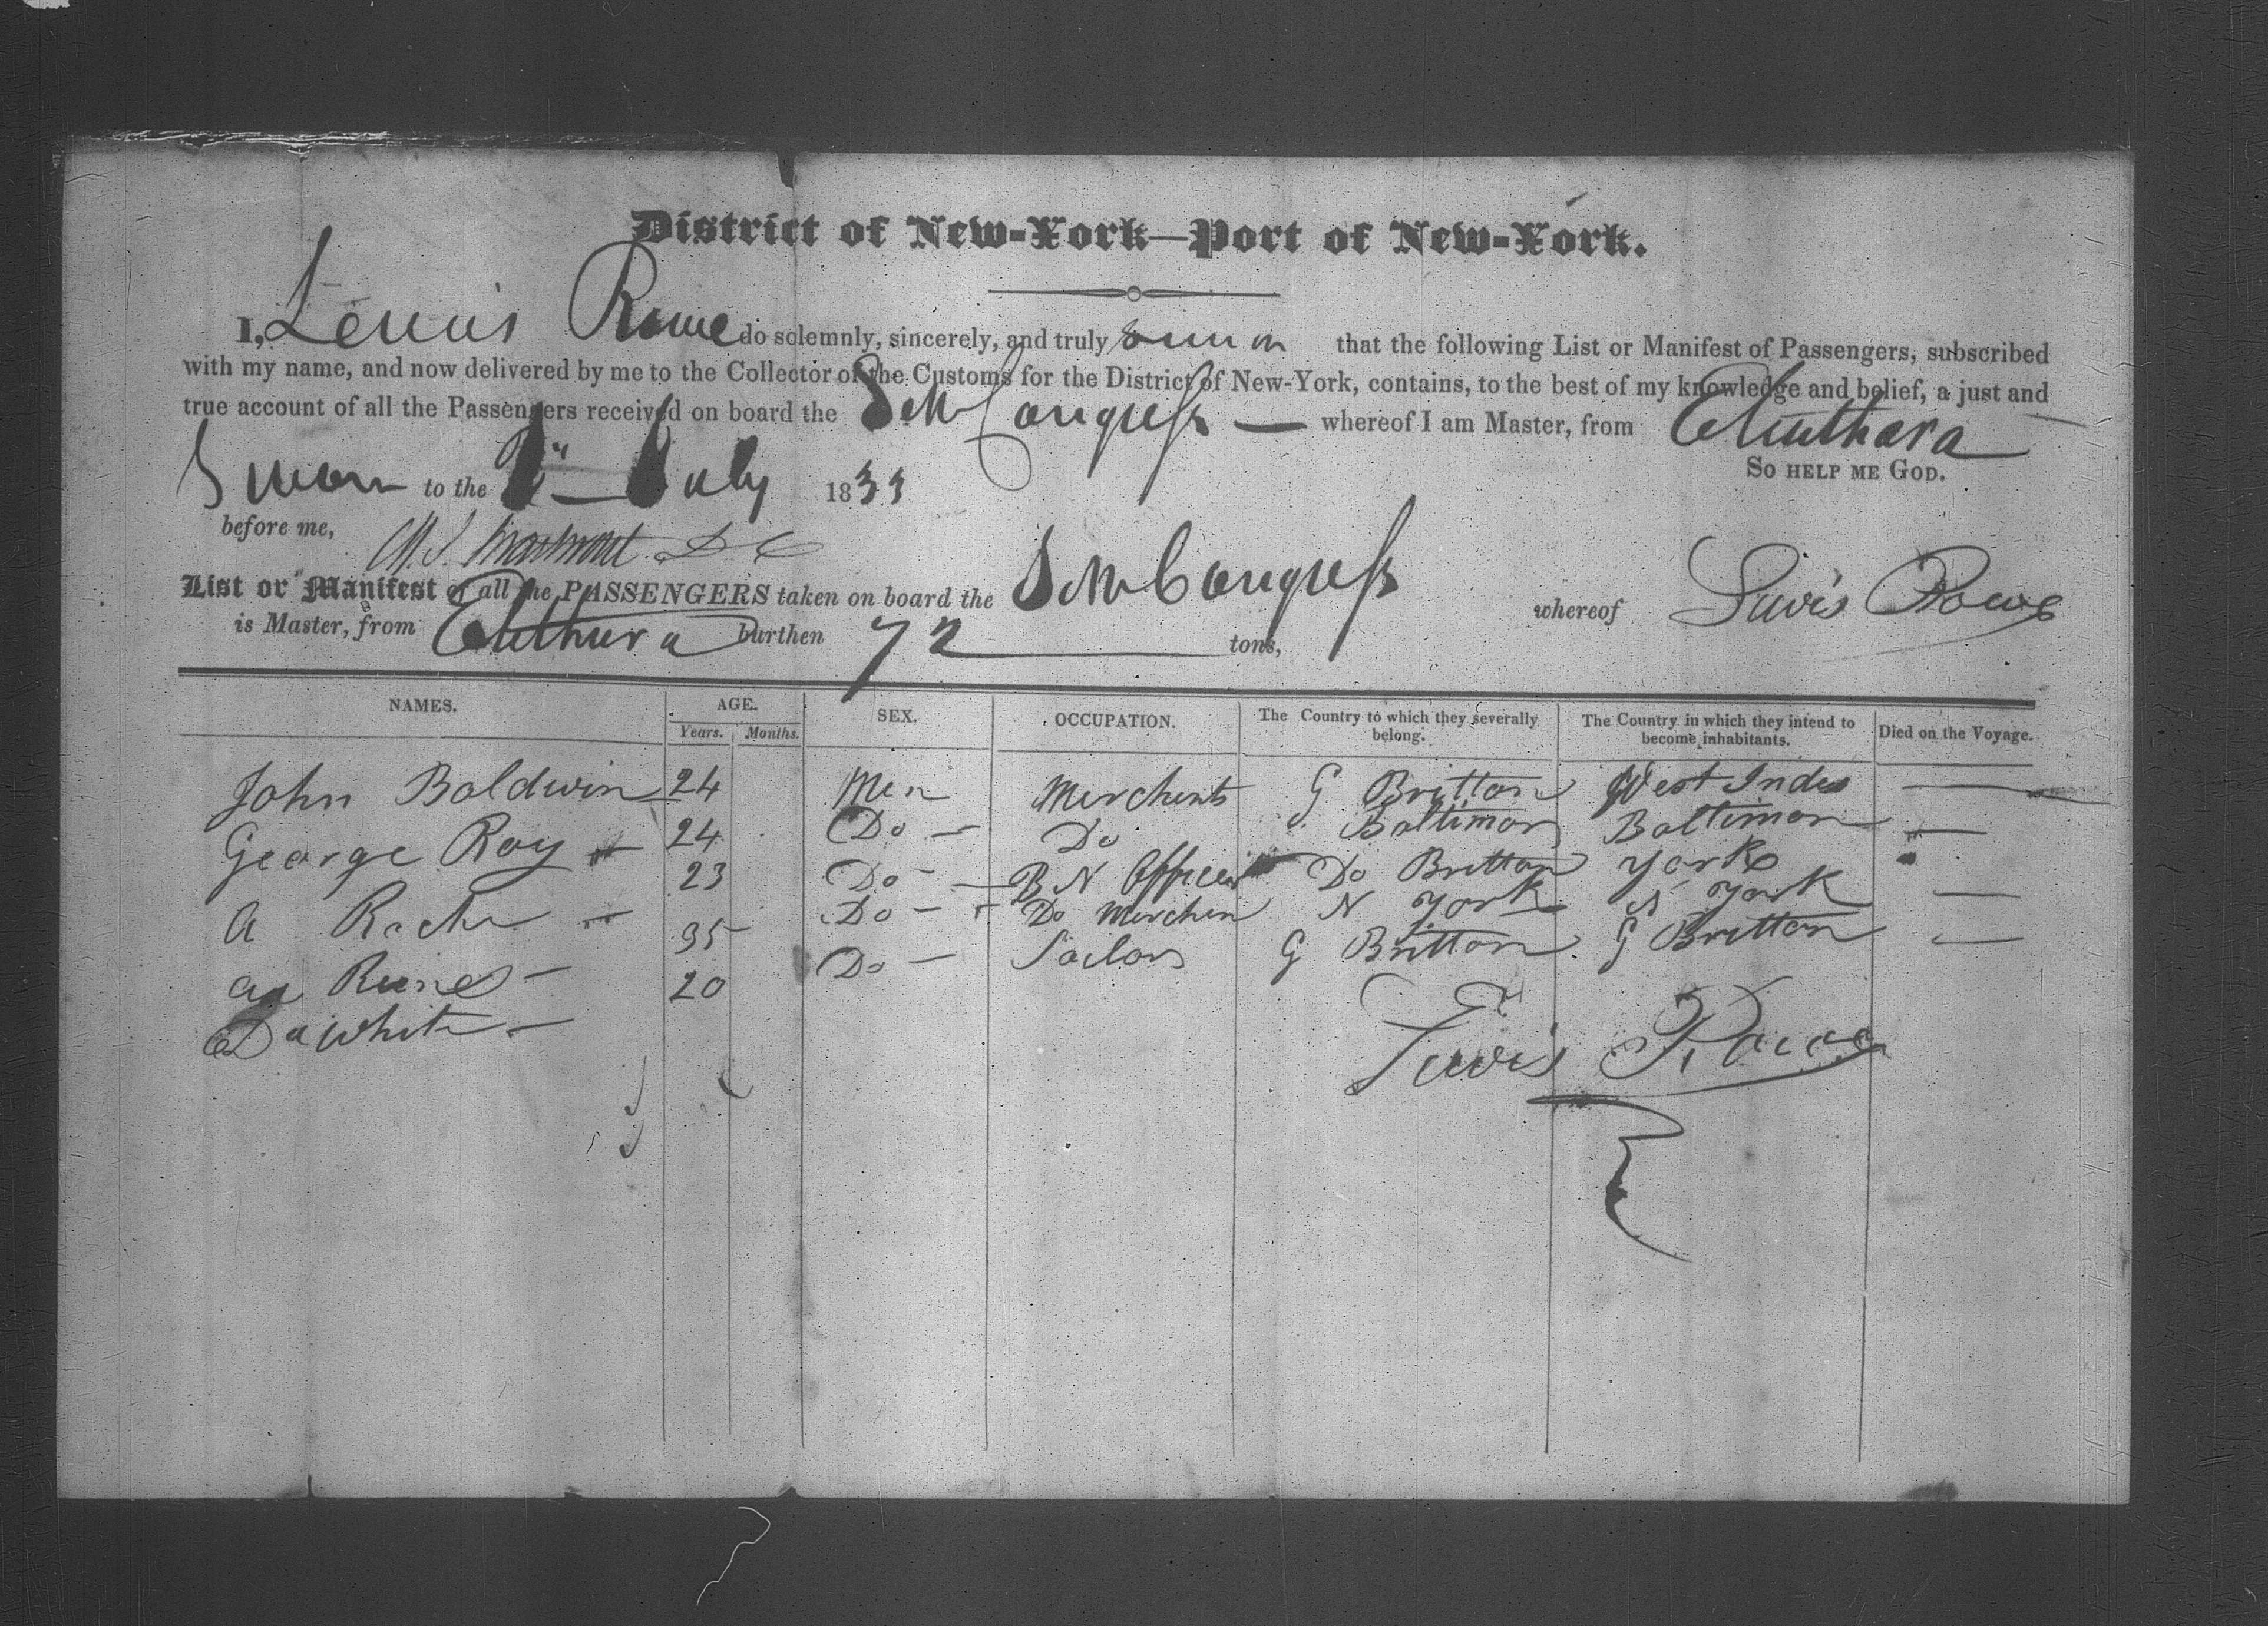 District of New-York—Port of New-York.
I, Lewis Rowe do solemnly, sincerely, and truly swear that the following List or Manifest of Passengers, subscribed
with my name, and now delivered by me to the Collector of the Customs for the District of New-York, contains, to the best of my knowledge and belief, a just and
true account of all the Passengers received on board the Schr Congress — whereof I am Master, from Eluthara
Sworn to the July 1833 So HELP ME GOD.
before me,
List or Manifest of all the PASSENGERS taken on board the Schr Congress whereof Lewis Rowe
is Master, from Eluthera burthen 72 tons,
NAMES. AGE. SEX. OCCUPATION. The Country to which they severally belong. The Country in which they intend to become inhabitants. Died on the Voyage.
Years. Months.
John Baldwin 24 Men Merchents G Britton West Indes —
George Roy — 24 Do — Do Baltimor Baltimor —
A 23 Do — B N Officer Do Britton York
35 Do — Do Merchen N York N York —
White — 20 Do — Sailor G Britton G Britton —
Lewis Rowe